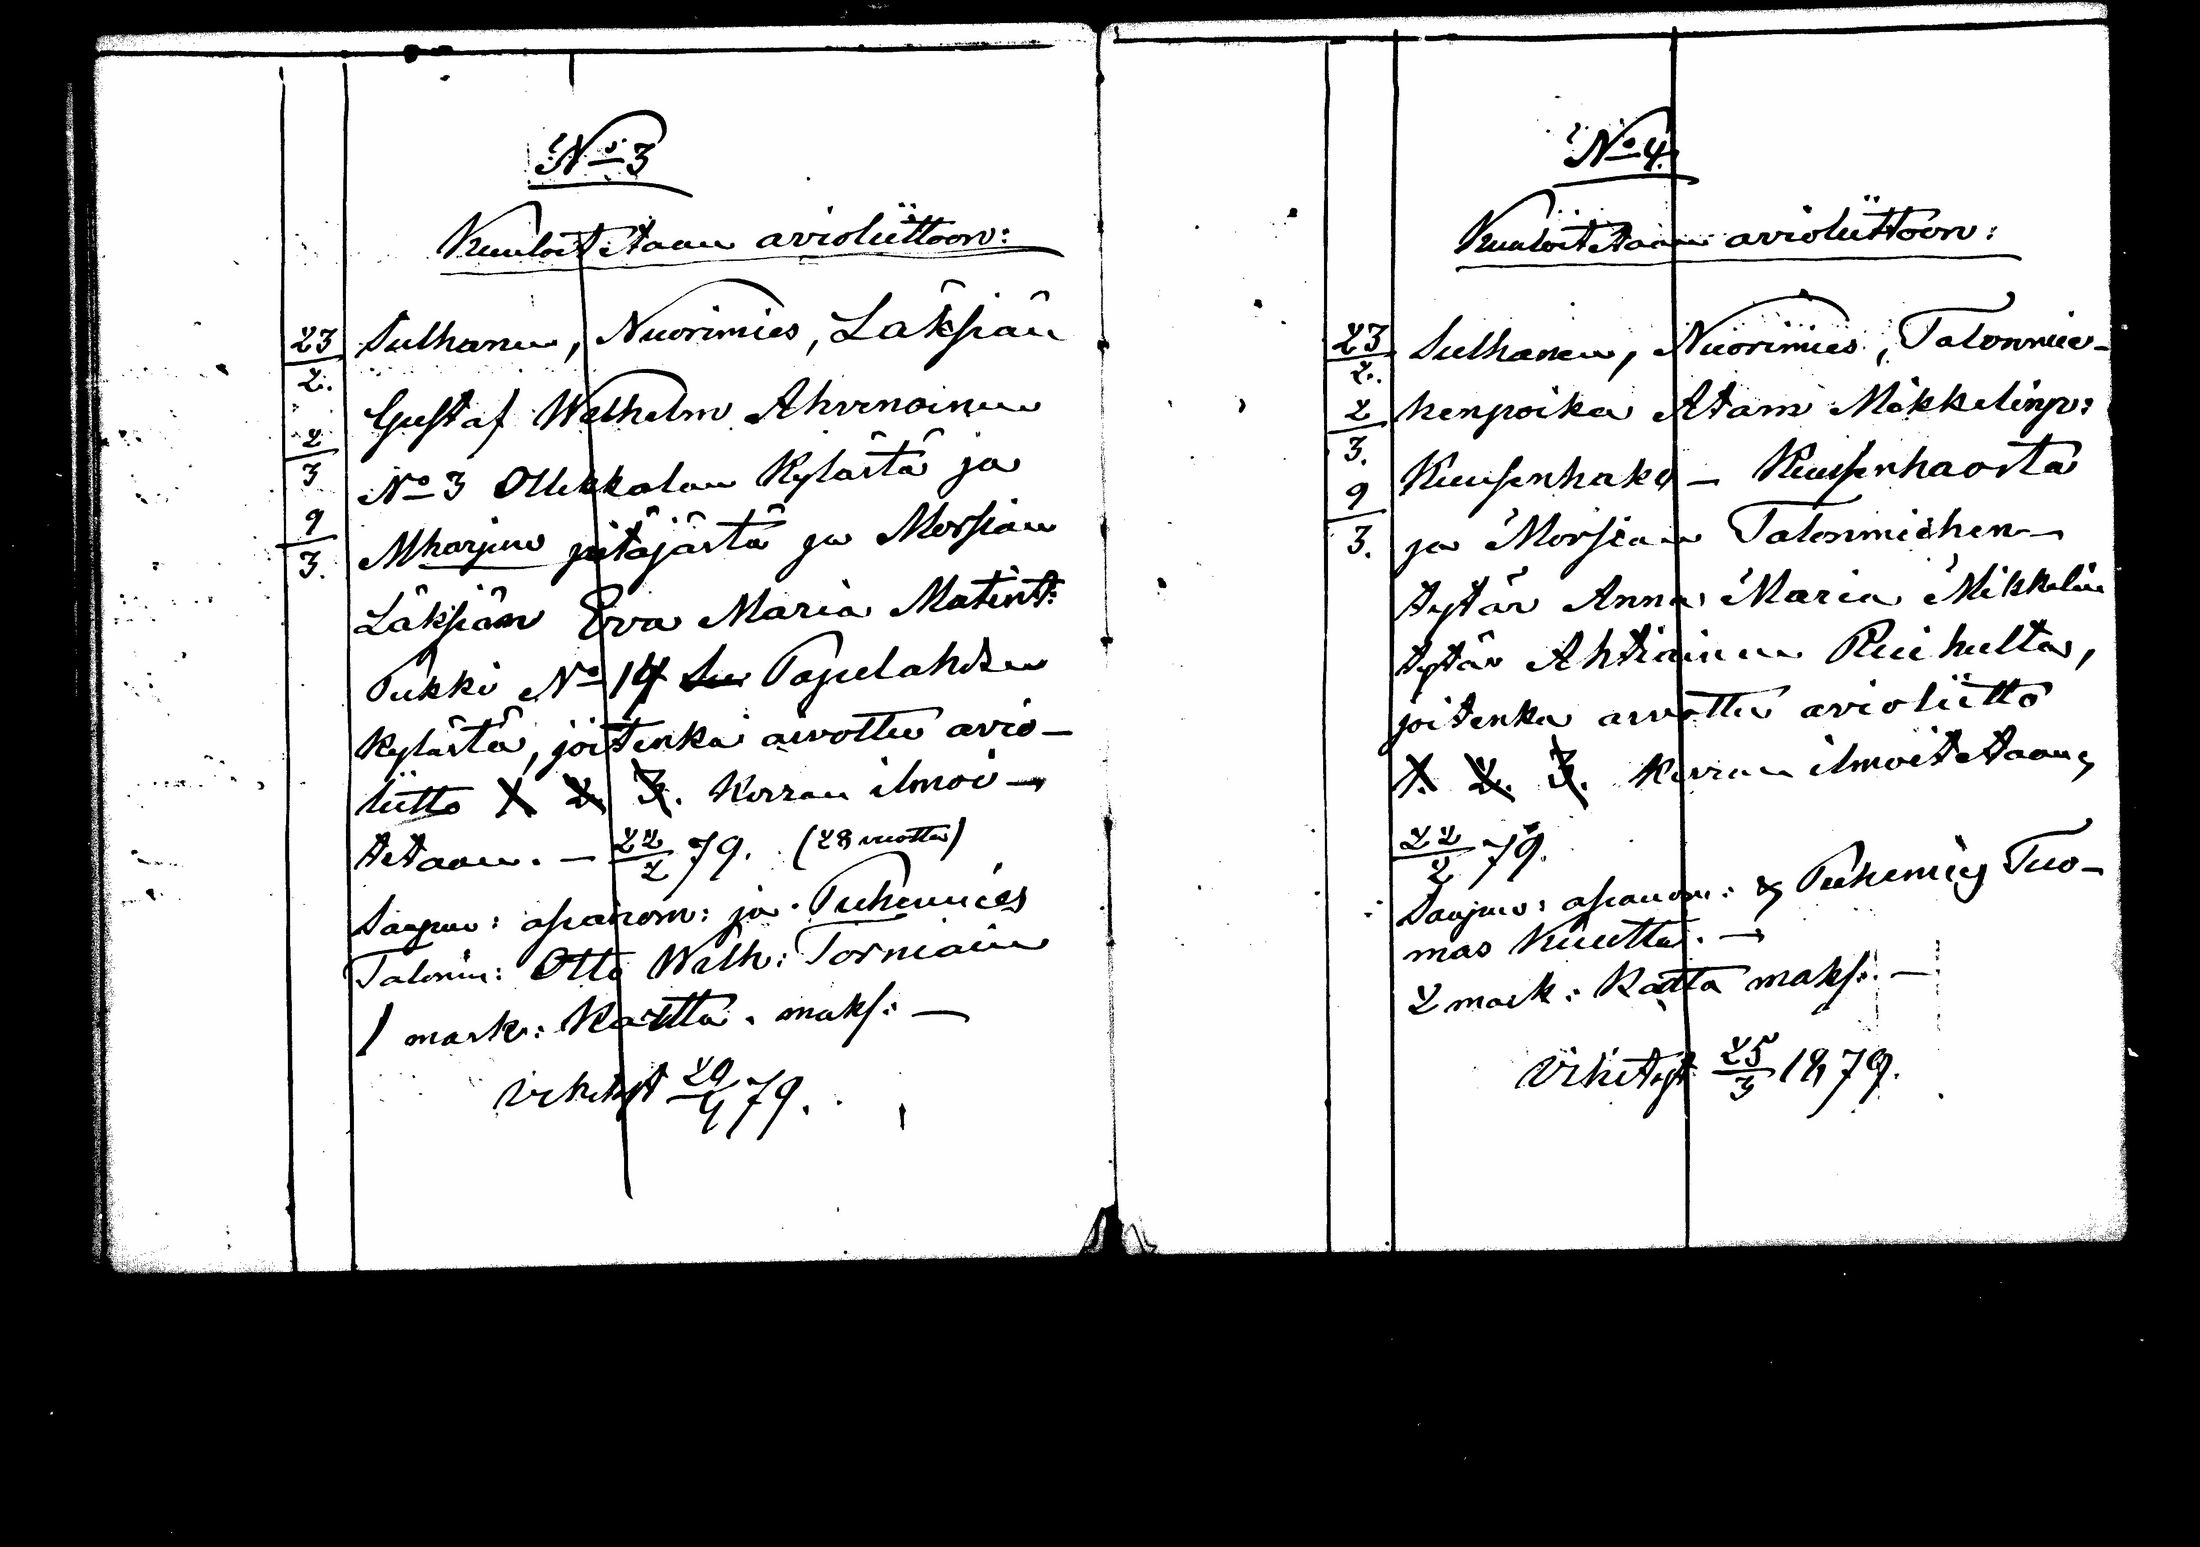 No 3
Kuuloitetaan avioliittoon:
23/2.
2/3
9/3.
Sulhanen, Nuorimies, Läksiän
Gustaf Wilhelm Ahvenoinen
No 3 Ollikkalan Kylästä ja
Mharjun pitäjästä ja Morsian
Läksiän Eva Maria Matint:
Pukki No 14 Papulahden
Kylästä, joitenka aivottu avio-
liitto 1 2. 3. Kerran ilmoi-
tetaan. - 22/2 79. (28 vuotta)
Saapuv: asianom: ja Puhemies
Talonm: Otto Wilh: Torniain
1 mark: Kartta. maks: -
Vihityt 20/4 79.
No 4.
Kuuloitetaan avioliittoon:
23/2.
2/3.
9/3.
Sulhanen, Nuorimies, Talonmie-
henpoika Atam Mikkelinp:
Kuusenhako - Kuusenhaosta
ja Morsian Talonmiehen-
tytär Anna Maria Mikkelin
tytär Ahtiainen
joitenka aivottu avioliitto
1. 2. 3. Kerran ilmoitetaan,
22/2 79.
Saapuv: asianom: & Puhemies Tuo-
mas Kuutta. -
2 mark: Kartta maks: -
Vihityt 25/3 1879.